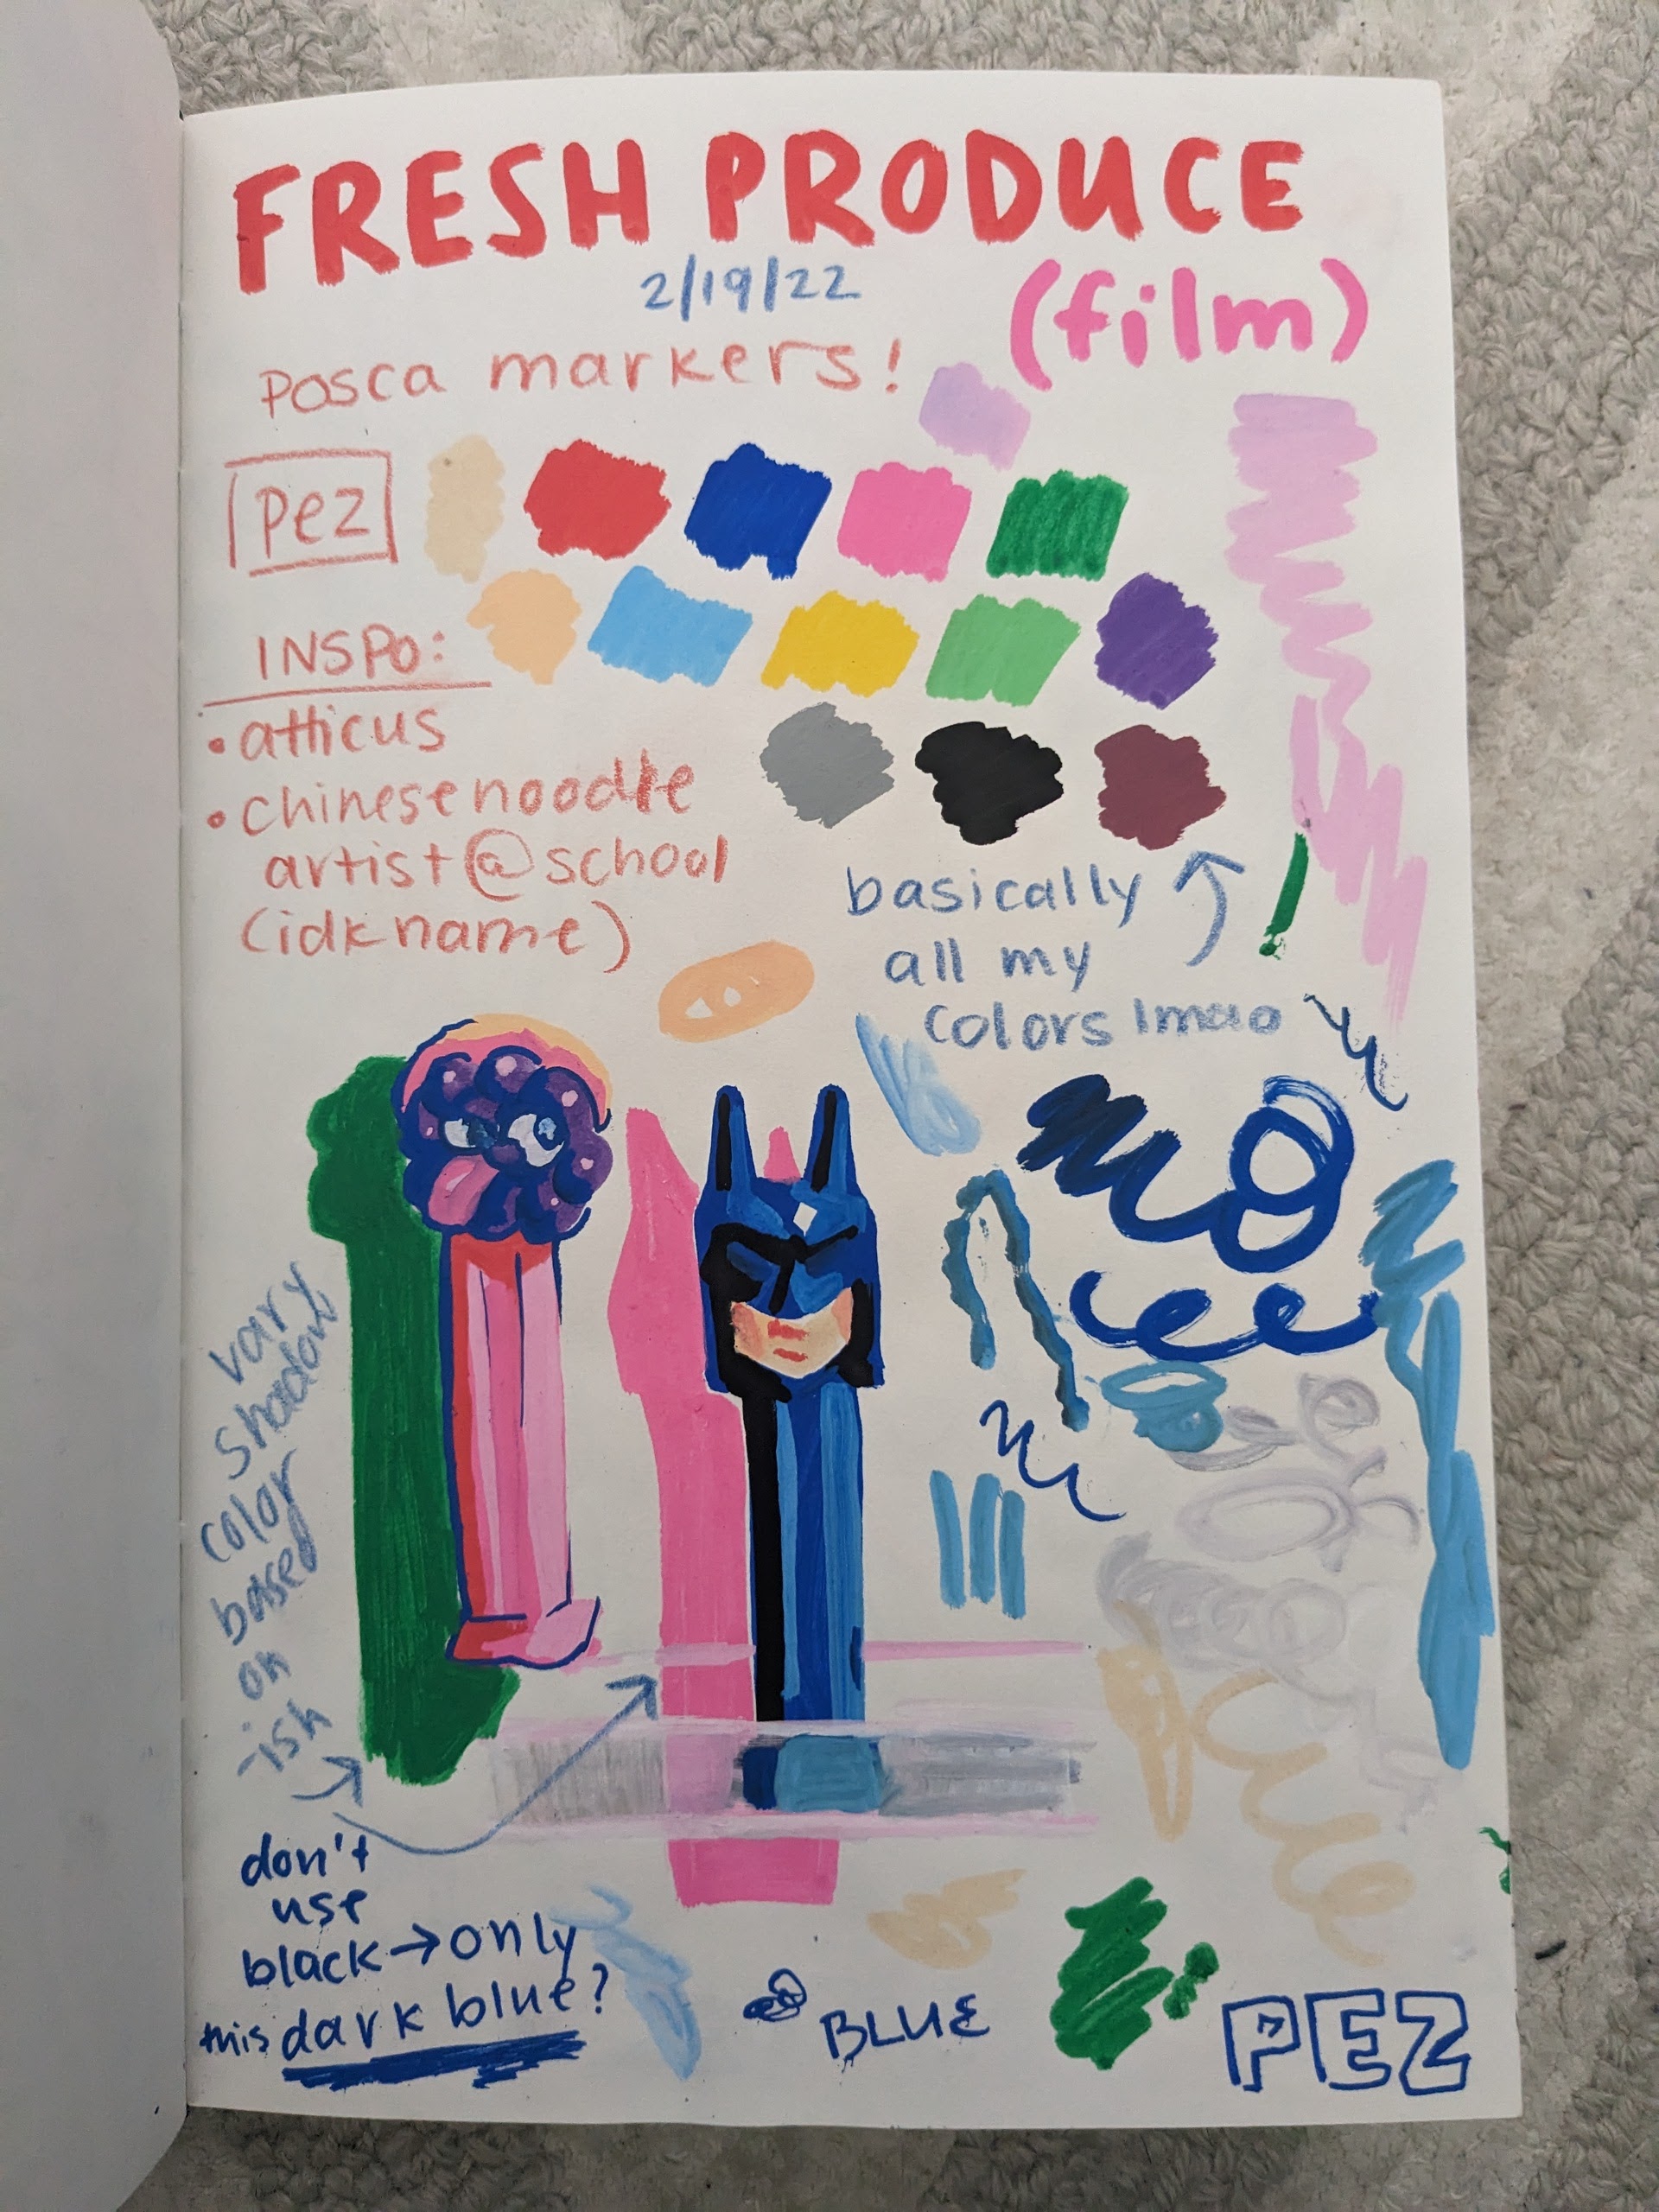 FRESH PRODUCE
2/19/22
(film)
Posca markers!
pez
INSPO:
• atticus
• chinese noodle
artist @ school
(idk name)
basically
all my
colors lmao
vary
shadow
color
based
on
-ish
don't
use
black → only
this dark blue?
BLUE
PEZ